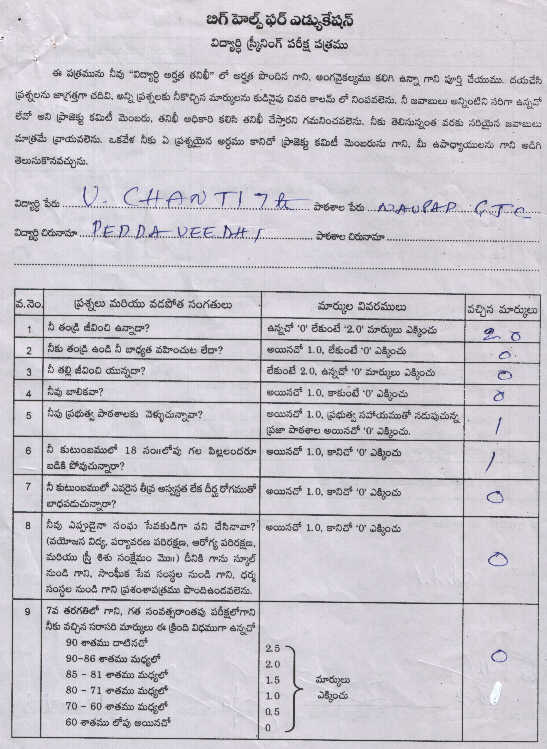 బిగ్ హెల్ప్ ఫర్ ఎడ్యుకేషన్
విద్యార్థి స్క్రీనింగ్ పరీక్ష పత్రము
ఈ పత్రమును నీవు "విద్యార్థి అర్హత తనిఖీ" లో అర్హత పొందిన గాని, అంగవైకల్యము కలిగి ఉన్నా గాని పూర్తి చేయుము. దయచేసి
ప్రశ్నలను జాగ్రత్తగా చదివి, అన్ని ప్రశ్నలకు నీకొచ్చిన మార్కులను కుడివైపు చివరి కాలమ్ లో నింపవలెను. నీ జవాబులు అన్నింటిని సరిగా ఉన్నదో
లేవో అని ప్రాజెక్టు కమిటీ మెంబరు, తనిఖీ అధికారి కలిసి తనిఖీ చేస్తారని గమనించవలెను. నీకు తెలిసున్నంత వరకు సరియైన జవాబులు
మాత్రమే వ్రాయవలెను. ఒకవేళ నీకు ఏ ప్రశ్నయైన అర్థము కానిచో ప్రాజెక్టు కమిటీ మెంబరును గాని, మీ ఉపాధ్యాయులను గాని అడిగి
తెలుసుకొనవచ్చును.
విద్యార్థి పేరు U. CHANTI 7th పాఠశాల పేరు NAUPAD
విద్యార్థి చిరునామా PEDDA VEEDHI పాఠశాల చిరునామా
వ.నెం. ప్రశ్నలు మరియు వడపోత సంగతులు మార్కుల వివరములు వచ్చిన మార్కులు
1 నీ తండ్రి జీవించి ఉన్నాడా? ఉన్నచో '0' లేకుంటే '2.0' మార్కులు ఎక్కించు 2.0
2 నీకు తండ్రి ఉండి నీ బాధ్యత వహించుట లేదా? అయినచో 1.0, లేకుంటే '0' ఎక్కించు 0
3 నీ తల్లి జీవించి యున్నదా? లేకుంటే 2.0, ఉన్నచో '0' మార్కులు ఎక్కించు 0
4 నీవు బాలికవా? అయినచో 1.0, కాకుంటే '0' ఎక్కించు 0
5 నీవు ప్రభుత్వ పాఠశాలకు వెళ్ళుచున్నావా? అయినచో 1.0, ప్రభుత్వ సహాయముతో నడుపుచున్న
ప్రజా పాఠశాల అయినచో '0' ఎక్కించు. 1
6 నీ కుటుంబములో 18 సం॥లోపు గల పిల్లలందరూ అయినచో 1.0, కానిచో '0' ఎక్కించు 1
బడికి పోవుచున్నారా?
7 నీ కుటుంబములో ఎవరైన తీవ్ర అస్వస్థత లేక దీర్ఘ రోగముతో అయినచో 1.0, కానిచో '0' ఎక్కించు 0
బాధపడుచున్నారా?
8 నీవు ఎప్పుడైనా సంఘ సేవకుడిగా పని చేసినావా? అయినచో 1.0, కానిచో '0' ఎక్కించు
(వయోజన విద్య, పర్యావరణ పరిరక్షణ, ఆరోగ్య పరిరక్షణ,
మరియు స్త్రీ శిశు సంక్షేమం మొ॥) దీనికి గాను స్కూల్ 0
నుండి గాని, సాంఘీక సేవ సంస్థల నుండి గాని, ధర్మ
సంస్థల నుండి గాని ప్రశంశాపత్రము పొందిఉండవలెను.
9 7వ తరగతిలో గాని, గత సంవత్సరాంతపు పరీక్షలోగాని
నీకు వచ్చిన సరాసరి మార్కులు ఈ క్రింది విధముగా ఉన్నచో
90 శాతము దాటినచో 2.5
90-86 శాతము మధ్యలో 2.0 0
85 - 81 శాతము మధ్యలో 1.5 మార్కులు
80 - 71 శాతము మధ్యలో 1.0 ఎక్కించు
70 - 60 శాతము మధ్యలో 0.5
60 శాతము లోపు అయినచో 0